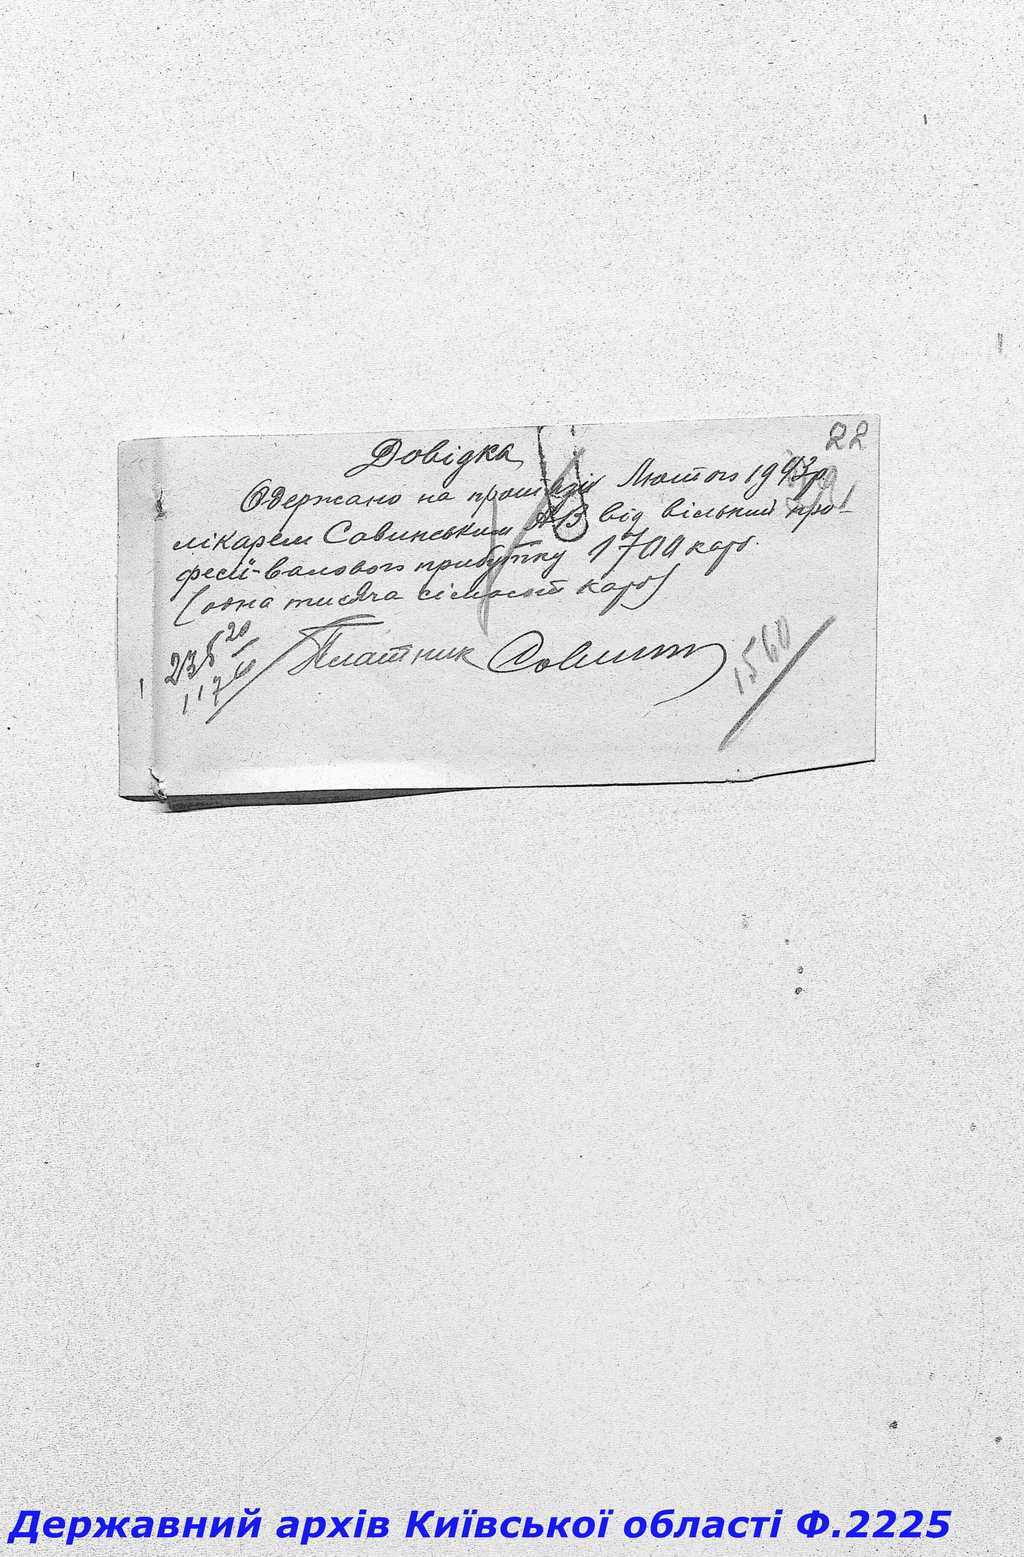 22
Довідка
Одержано на протязі Лютого 1943р
лікарем Савинським від вільний про-
фесії-валового прибутку 1700 карб.
(одна тисяча сімсот карб)
Платник
1560
Державний архів Київської області Ф.2225